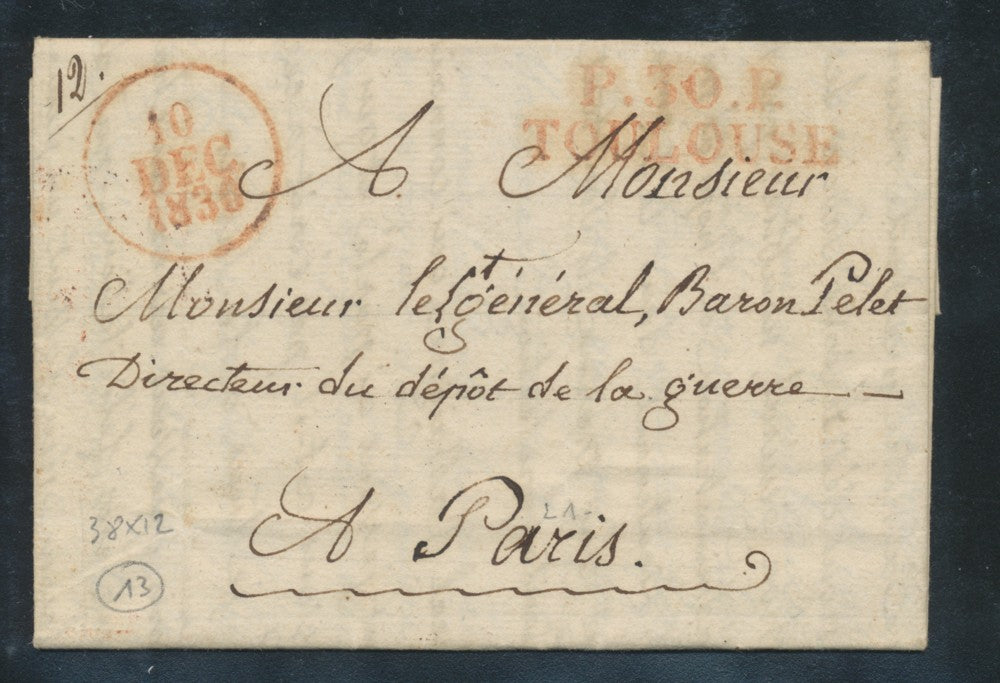 12.
10
DEC.
1830
P.30.P.
TOULOUSE
A Monsieur
Monsieur le Lt général, Baron Pelet
Directeur du dépôt de la guerre
A Paris.
38X12
13